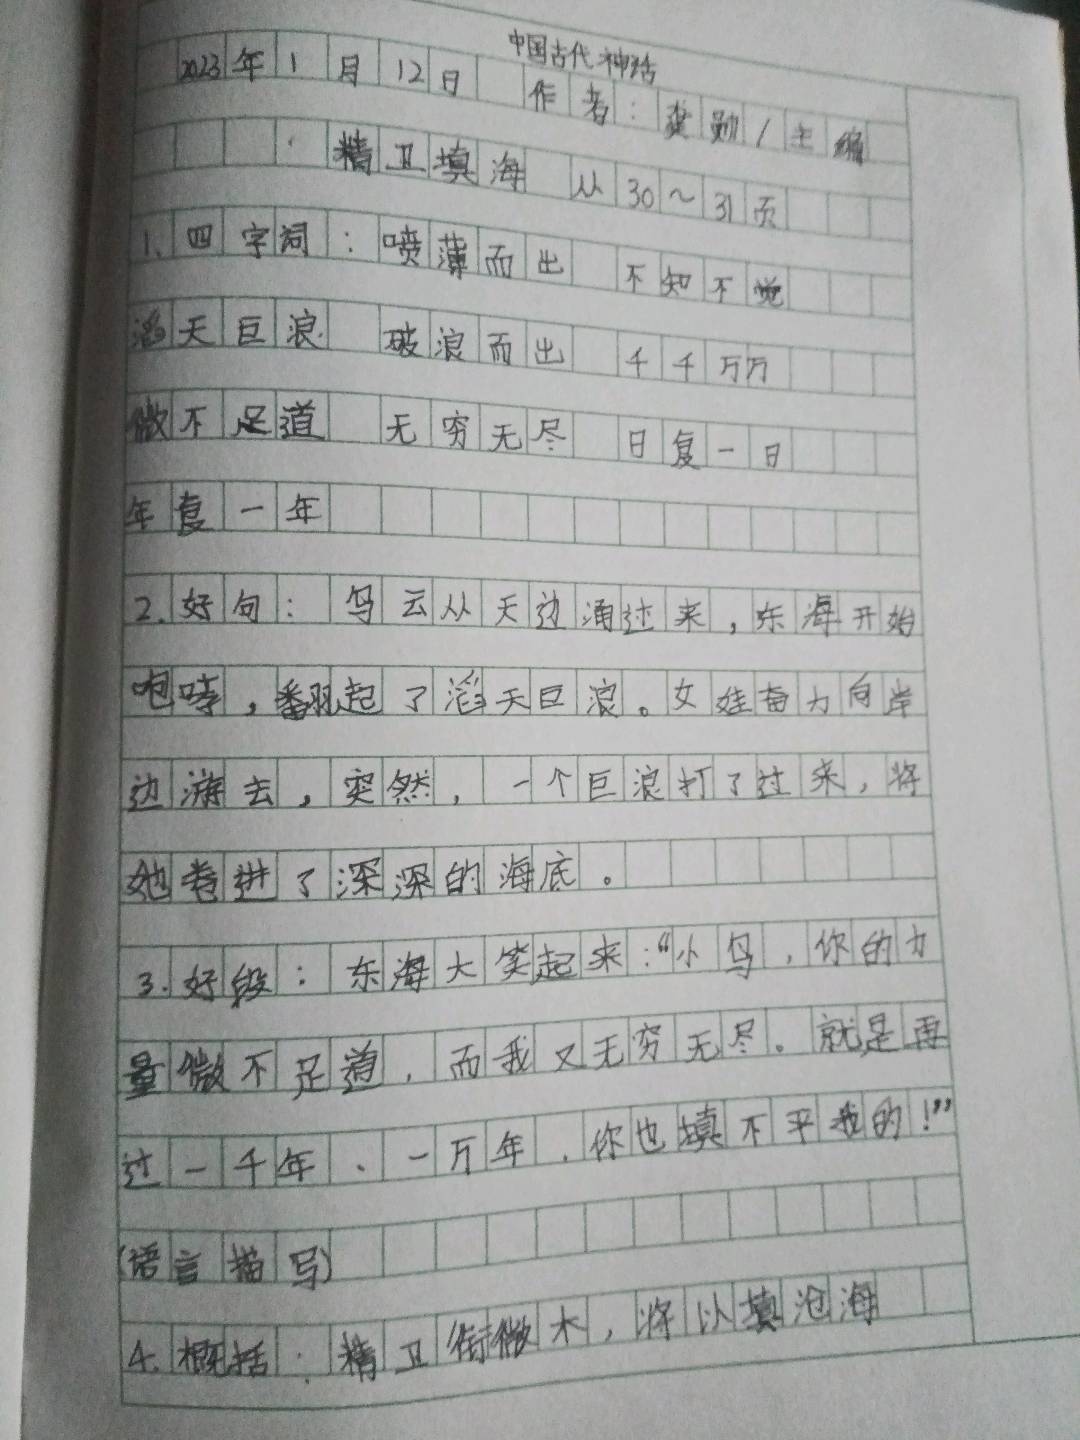 中国古代神话
2023年1月12日 作者：龚勋/主编
精卫填海 从30~31页
1.四字词：喷薄而出 不知不觉
滔天巨浪 破浪而出 千千万万
微不足道 无穷无尽 日复一日
年复一年
2.好句：乌云从天边涌过来，东海开始
咆哮，翻起了滔天巨浪。女娃奋力向岸
边游去，突然，一个巨浪打了过来，将
她卷进了深深的海底。
3.好段：东海大笑起来：“小鸟，你的力
量微不足道，而我又无穷无尽。就是再
过一千年、一万年，你也填不平我的！”
（语言描写）
4.概括：精卫衔微木，将以填沧海